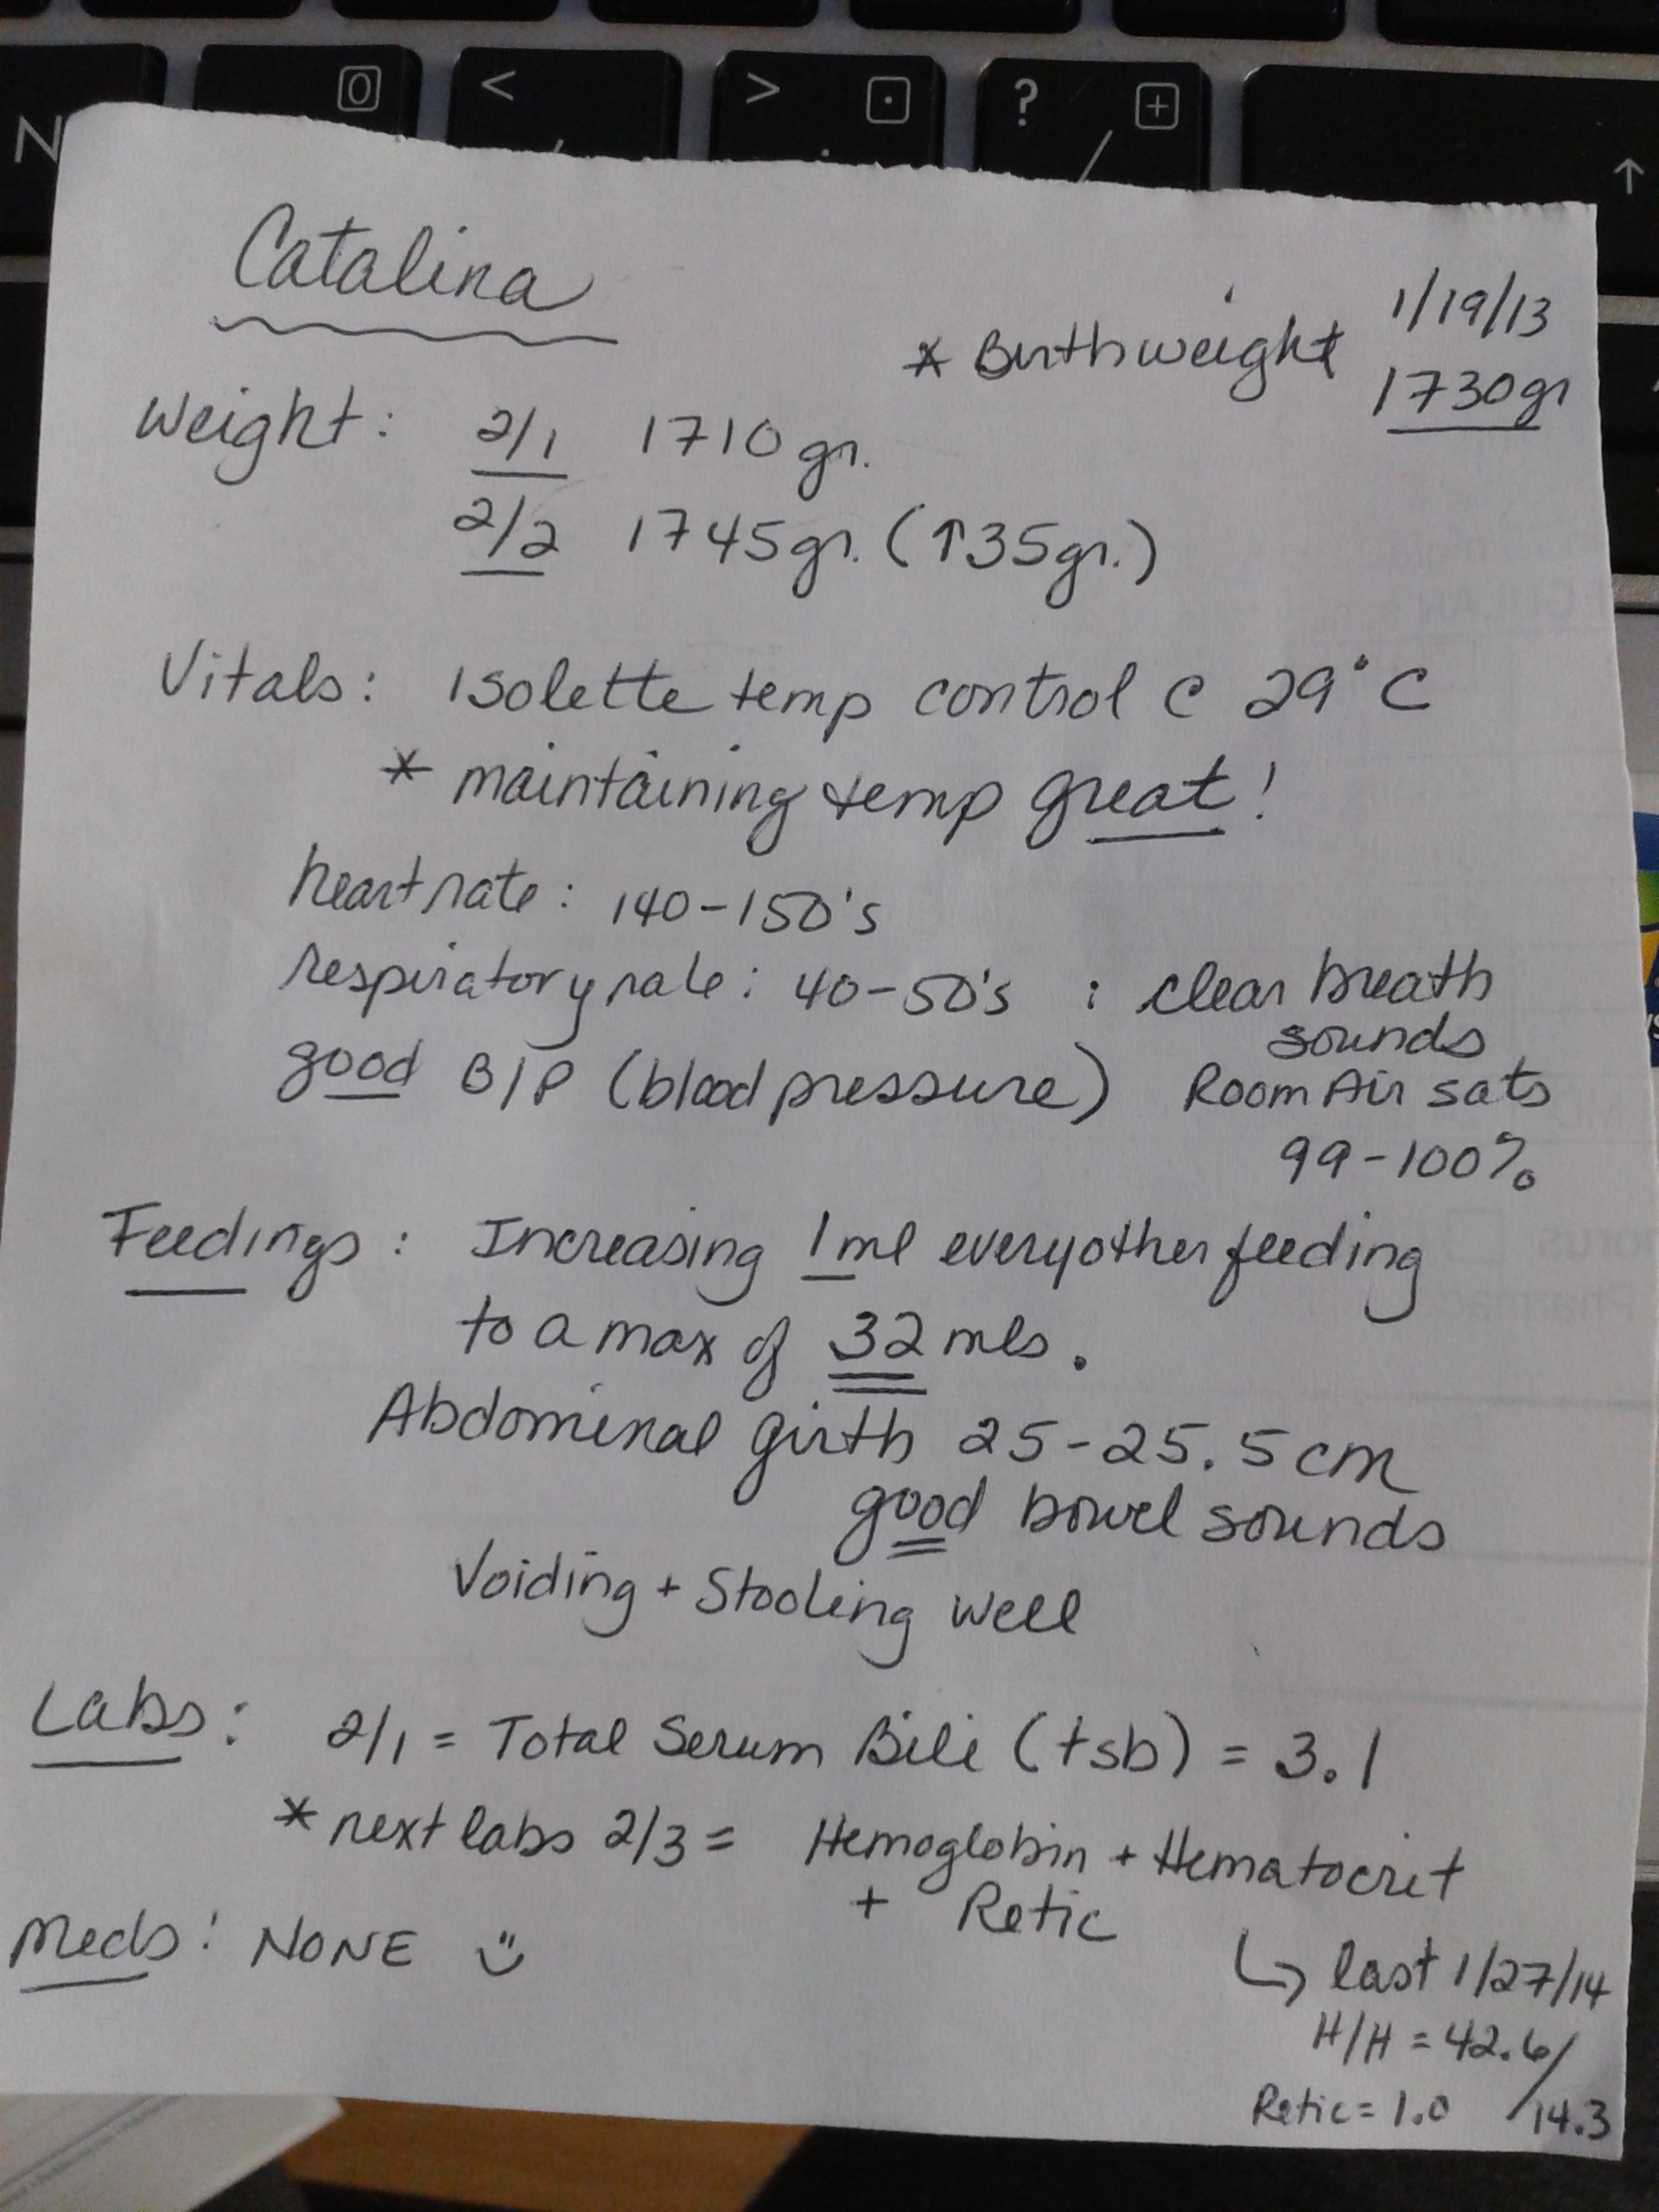 N O < > . ? / + ↑
Catalina
1/19/13
* Birthweight 1730gr
Weight: 2/1 1710 gr.
2/2 1745gr. (↑35gr.)
Vitals: Isolette temp control c 29°C
* maintaining temp great!
heart rate: 140-150's
respiratory rate: 40-50's : clear breath
sounds
good B/P (blood pressure) Room Air sats
99-100%
Feedings: Increasing 1ml every other feeding
to a max of 32 mls.
Abdominal girth 25-25.5cm
good bowel sounds
Voiding + Stooling well
Labs: 2/1 = Total Serum Bili (tsb) = 3.1
* next labs 2/3 = Hemoglobin + Hematocrit
+ Retic
Meds: NONE ☺
↳ last 1/27/14
H/H = 42.6/
Retic = 1.0 /14.3